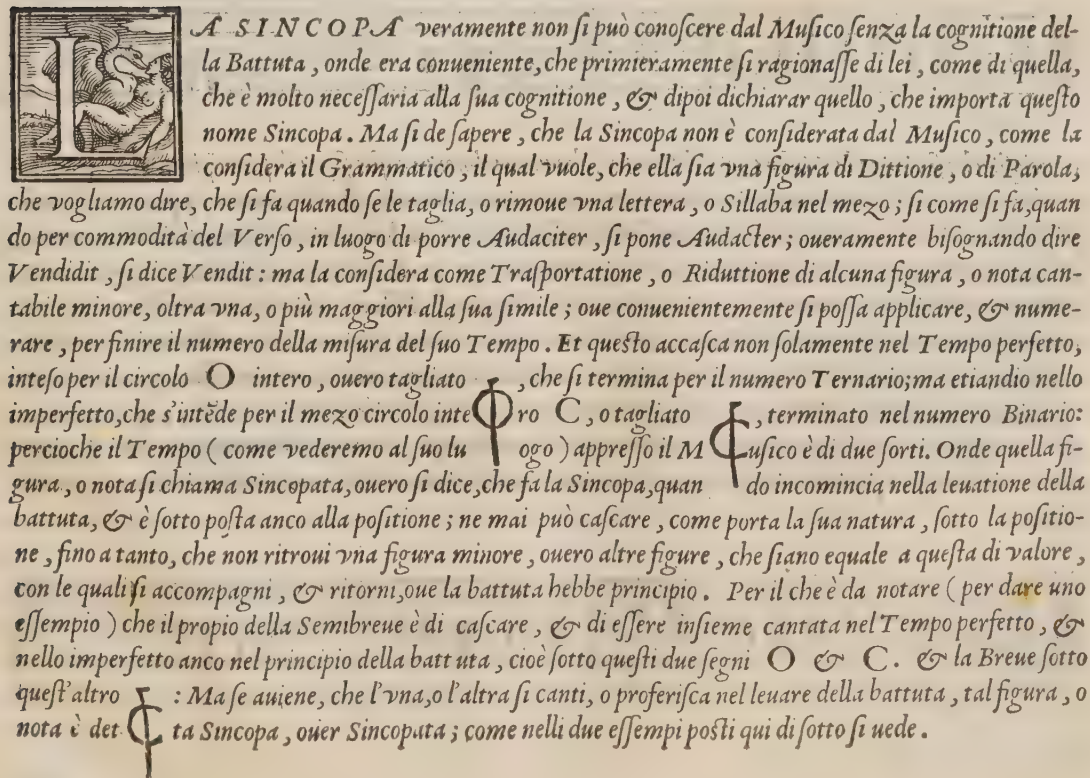 LA SINCOPA veramente non ſi può conoſcere dal Muſico ſenza la cognitione del-
la Battuta, onde era conueniente, che primieramente ſi ragionaſſe di lei, come di quella,
che è molto neceſſaria alla ſua cognitione, & dipoi dichiarar quello, che importa queſto
nome Sincopa. Ma ſi de ſapere, che la Sincopa non è conſiderata dal Muſico, come la
conſidera il Grammatico; il qual vuole, che ella ſia vna figura di Dittione, o di Parola,
che vogliamo dire, che ſi fa quando ſe le taglia, o rimoue vna lettera, o Sillaba nel mezo; ſi come ſi fa, quan
do per commodità del Verſo, in luogo di porre Audaciter, ſi pone Audacter; oueramente biſognando dire
Vendidit, ſi dice Vendit: ma la conſidera come Traſportatione, o Riduttione di alcuna figura, o nota can-
tabile minore, oltra vna, o più maggiori alla ſua ſimile; oue conuenientemente ſi poſſa applicare, & nume-
rare, per finire il numero della miſura del ſuo Tempo. Et queſto accaſca non ſolamente nel Tempo perfetto,
inteſo per il circolo O intero, ouero tagliato , che ſi termina per il numero Ternario; ma etiandio nello
imperfetto, che s'intēde per il mezo circolo inte ro C, o tagliato , terminato nel numero Binario:
percioche il Tempo (come vederemo al ſuo lu ogo) appreſſo il M uſico è di due ſorti. Onde quella fi-
gura, o nota ſi chiama Sincopata, ouero ſi dice, che fa la Sincopa, quan do incomincia nella leuatione della
battuta, & è ſotto poſta anco alla poſitione; ne mai può caſcare, come porta la ſua natura, ſotto la poſitio-
ne, fino a tanto, che non ritroui vna figura minore, ouero altre figure, che ſiano equale a queſta di valore,
con le quali ſi accompagni, & ritorni, oue la battuta hebbe principio. Per il che è da notare (per dare uno
eſſempio) che il propio della Semibreue è di caſcare, & di eſſere inſieme cantata nel Tempo perfetto, &
nello imperfetto anco nel principio della batt uta, cioè ſotto queſti due ſegni O & C. & la Breue ſotto
queſt'altro : Ma ſe auiene, che l'vna, o l'altra ſi canti, o proferiſca nel leuare della battuta, tal figura, o
nota è det ta Sincopa, ouer Sincopata; come nelli due eſſempi poſti qui di ſotto ſi uede.